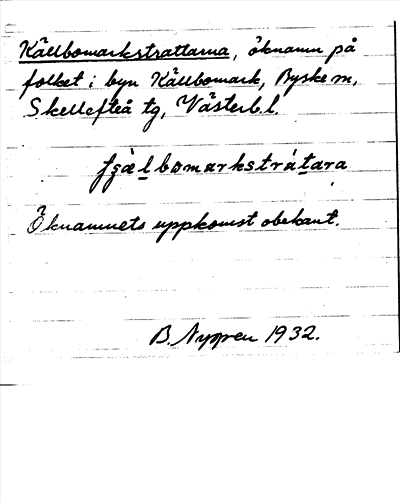 Källbomarkstrattarna, öknamn på
folket i byn Källbomark, Byske m,
Skellefteå tg, Västerb.l.
Öknamnets uppkomst obekant.
B. Nygren 1932.